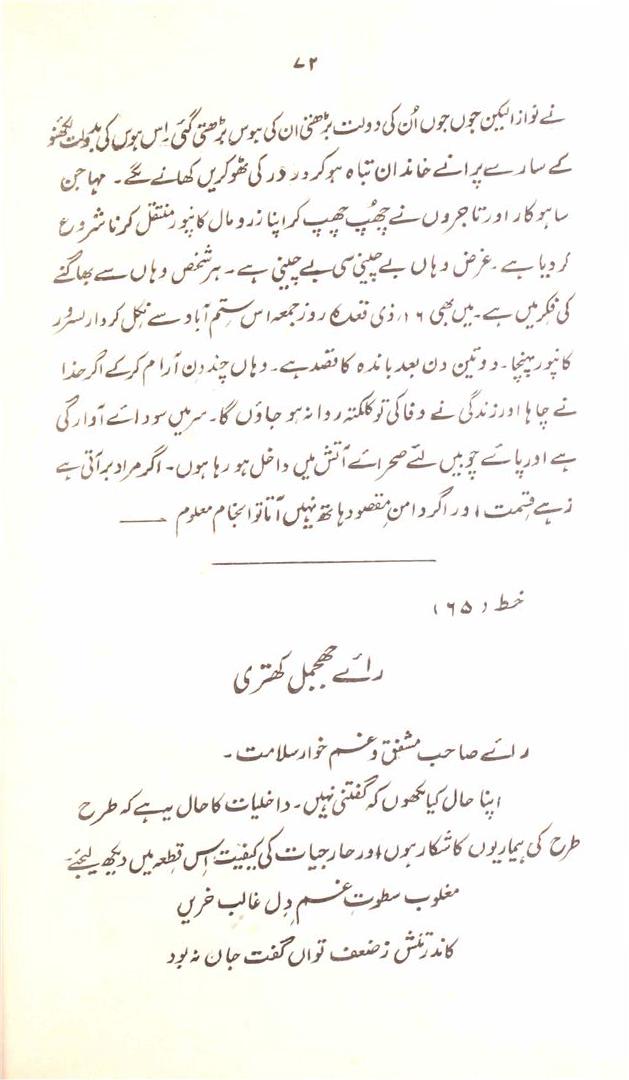 ۷۲
نے نوازا لیکن جوں جوں اُن کی دولت بڑھتی ان کی ہوس بڑھتی گئی۔ اِس ہوس کی بدولت لکھنؤ
کے سارے پرانے خاندان تباہ ہو کر در در کی ٹھوکریں کھانے لگے۔ مہاجن
ساہوکار اور تاجروں نے چھُپ چھُپ کر اپنا زر و مال کانپور منتقل کرنا شروع
کر دیا ہے۔ غرض وہاں بے چینی سی بے چینی ہے۔ ہر شخص وہاں سے بھاگنے
کی فکر میں ہے۔ میں بھی ۱۶، ذی قعدہ کا روز جمعہ اس ستم آباد سے نکل کر دار لسرور
کانپور پہنچا۔ دو تین دن بعد باندہ کا قصد ہے۔ وہاں چند دن آرام کر کے اگر خدا
نے چاہا اور زندگی نے وفا کی تو کلکتہ روانہ ہو جاؤں گا۔ سر میں سودائے آوارگی
ہے اور پائے چوبیں لئے صحرائے آتش میں داخل ہو رہا ہوں۔ اگر مراد بر آتی ہے
زہے قسمت، اور اگر دامنِ مقصود ہاتھ نہیں آتا تو انجام معلوم ——
خط (۶۵)
رائے چھجمل کھتری
رائے صاحب مشفق و غم خوار سلامت۔
اپنا حال کیا لکھوں کہ گفتنی نہیں۔ داخلیات کا حال یہ ہے کہ طرح
طرح کی بیماریوں کا شکار ہوں، اور خارجیات کی کیفیت اِس قطعہ میں دیکھ لیجئے۔
مغلوب سطوتِ غم دِل غالب حزیں
کاندر تنش ز ضعف تواں گفت جان نہ بود